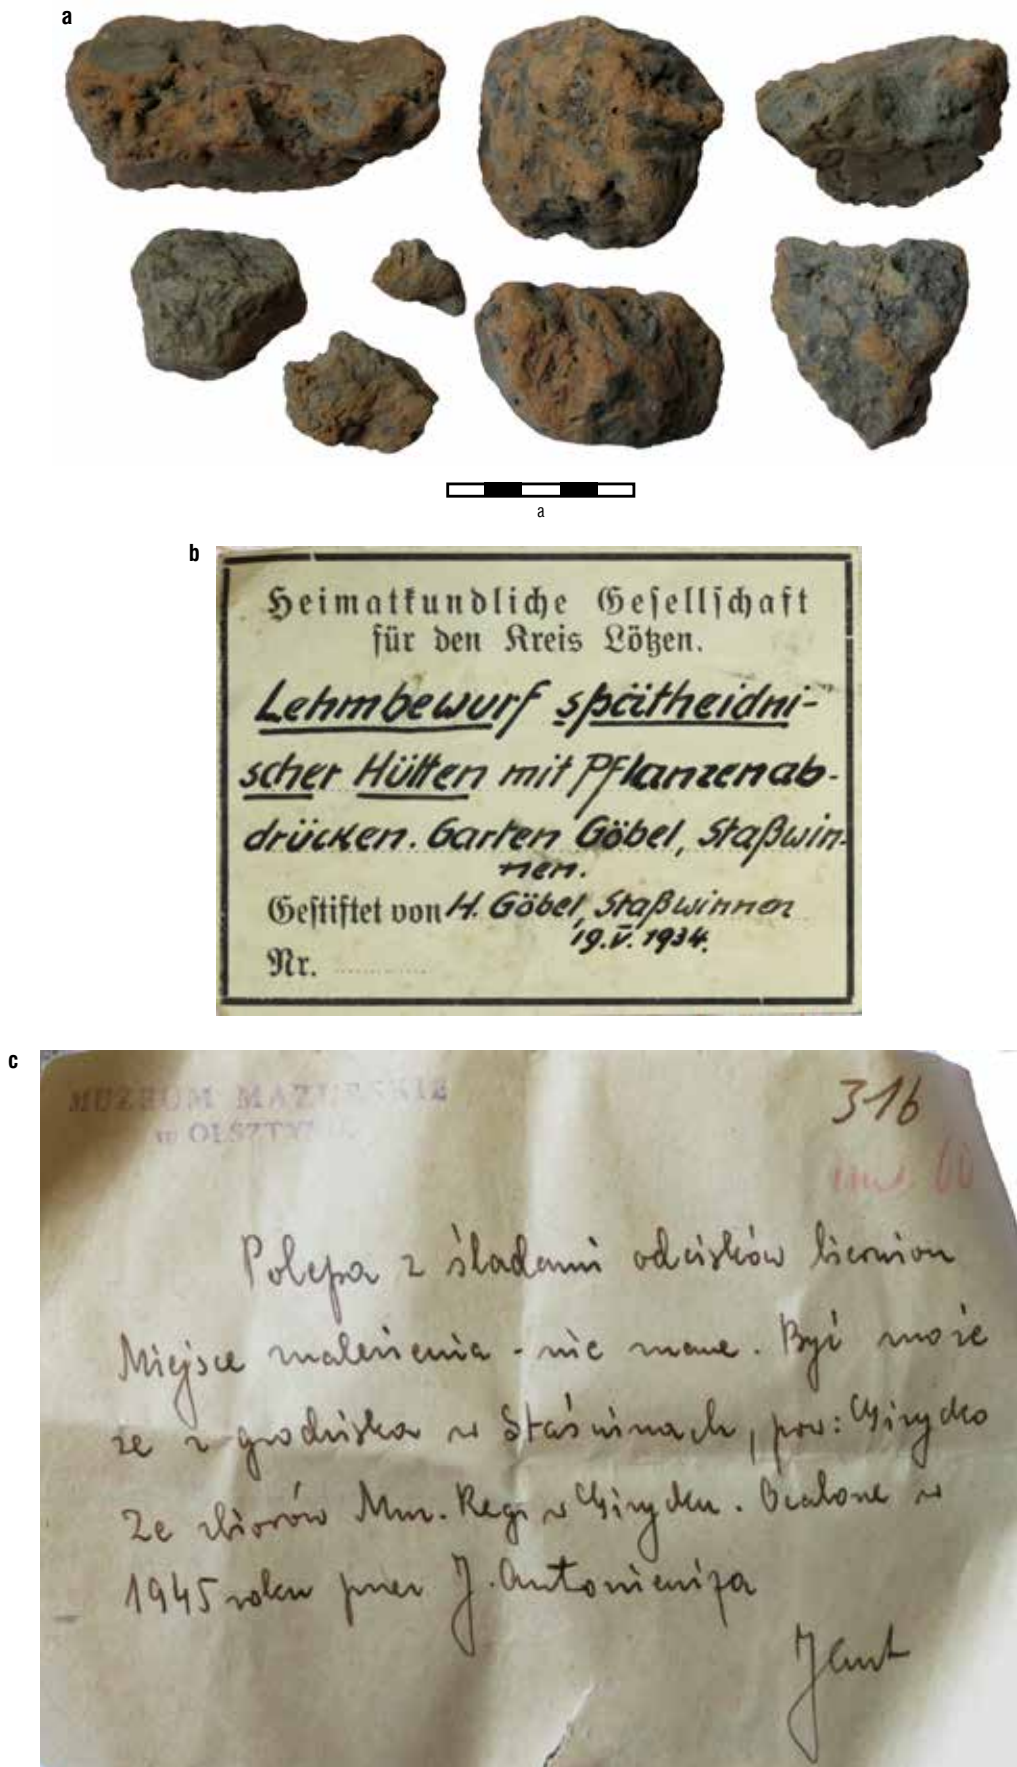 a
a
b
Heimatkundliche Gesellschaft
für den Kreis Lötzen.
Lehmbewurf spätheidni-
scher Hütten mit Pflanzenab-
drücken. Garten Göbel, Staßwin-
nen.
Gestiftet von H. Göbel, Staßwinnen
19.V. 1934.
Nr.
c
MUZEUM MAZURSKIE
w OLSZTYNIE
316
Polepa z śladami odcisków
Miejsce znalezienia - nie znane. Być może
że z grodziska w Staświnach, pow: Giżycko
Ze zbiorów Muz. Reg. w Giżycku. Ocalone w
1945 roku przez J. Antoniewicza
JAnt